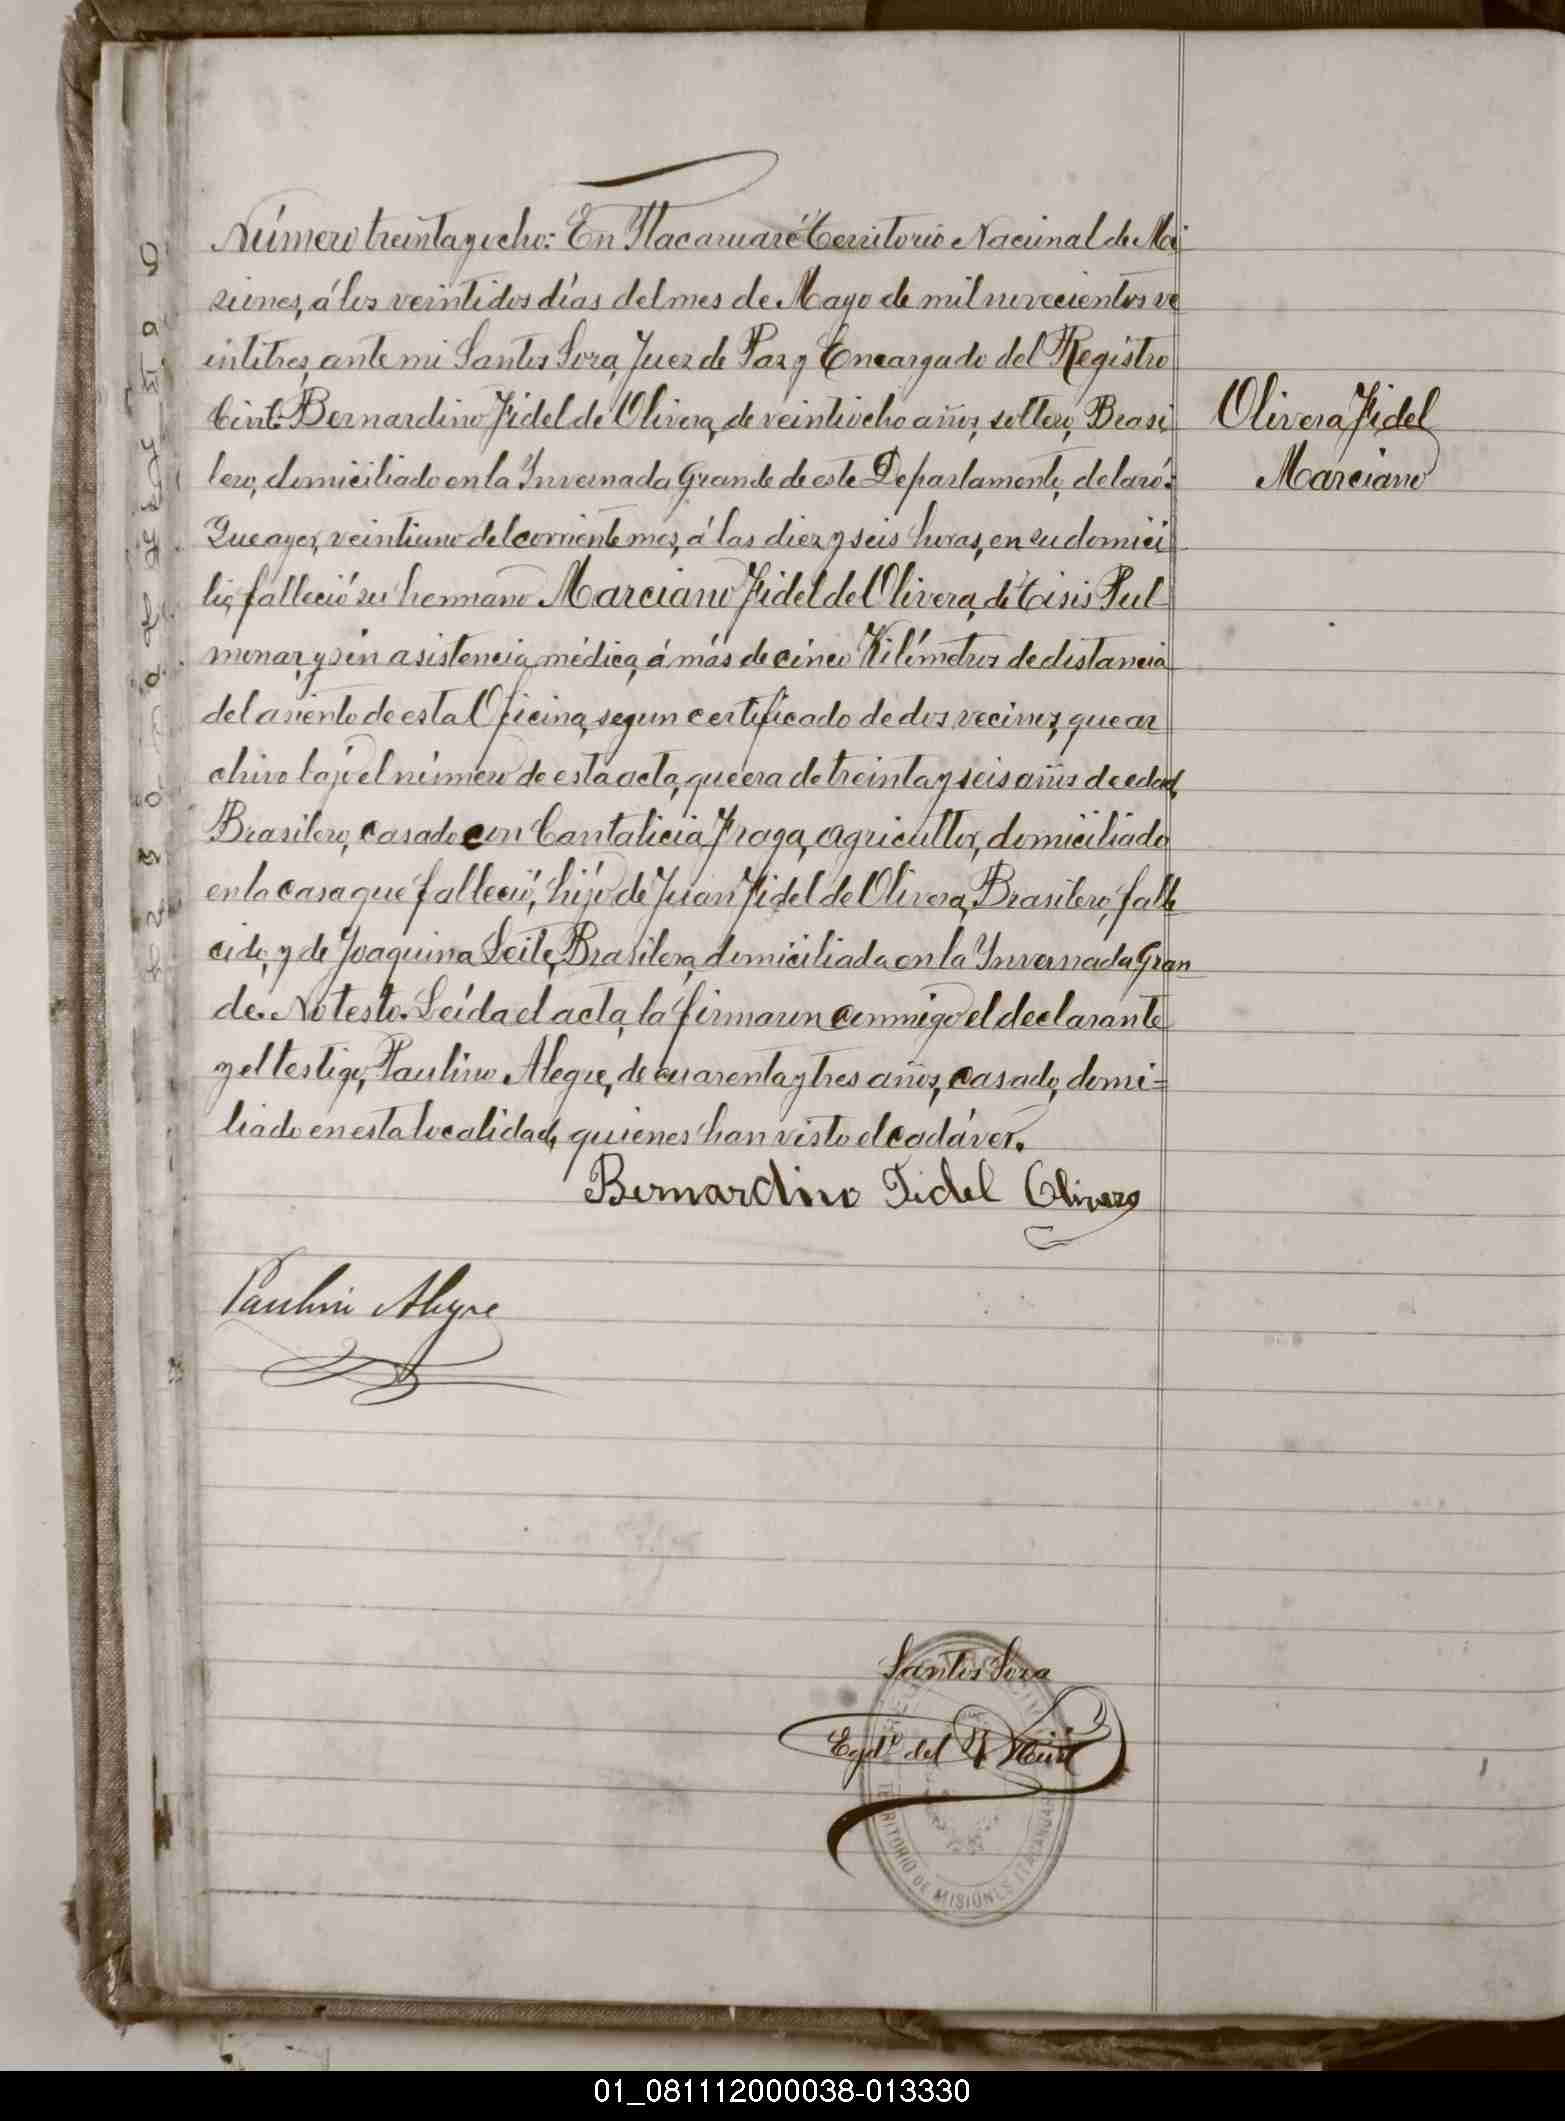 Número treinta y ocho: En Itacaruaré Territorio Nacional de Mi
siones, á los veintidos días del mes de Mayo de mil novecientos ve
intitres, ante mi Santos Sora, Juez de Paz y Encargado del Registro
Civil: Bernardino Fidel de Olivera, de veintiocho años, soltero, Brasi
lero, domiciliado en la Invernada Grande de este Departamento, delaró:
Que ayer, veintiuno del corriente mes, á las diez y seis horas, en su domici
lio, falleció su hermano Marciano Fidel de Olivera, de Tisis Pul
monar, y sin asistencia médica, á más de cinco Kilómetros de distancia
del asiento de esta Oficina, segun certificado de dos vecinos, que ar
chivo bajo el número de esta acta, que era de treinta y seis años de edad,
Brasilero, casado con Cantalicia Fraga, agricultor, domiciliado
en la casa que falleció, hijo de Juan Fidel de Olivera, Brasilero, falle
cido, y de Joaquina Leite, Brasilera, domiciliada en la Invernada Gran
de. No testo. Leída el acta, la firmaron conmigo el declarante
y el testigo, Paulino Alegre, de cuarenta y tres años, casado, domi=
liado en esta localidad, quienes han visto el cadáver.
Olivera Fidel
Marciano
Bernardino Fidel Olivera
Paulino Alegre
Santos Sora
Egdo del R. Civil
TERRITORIO DE MISIONES ITACARUARÉ
01_081112000038-013330